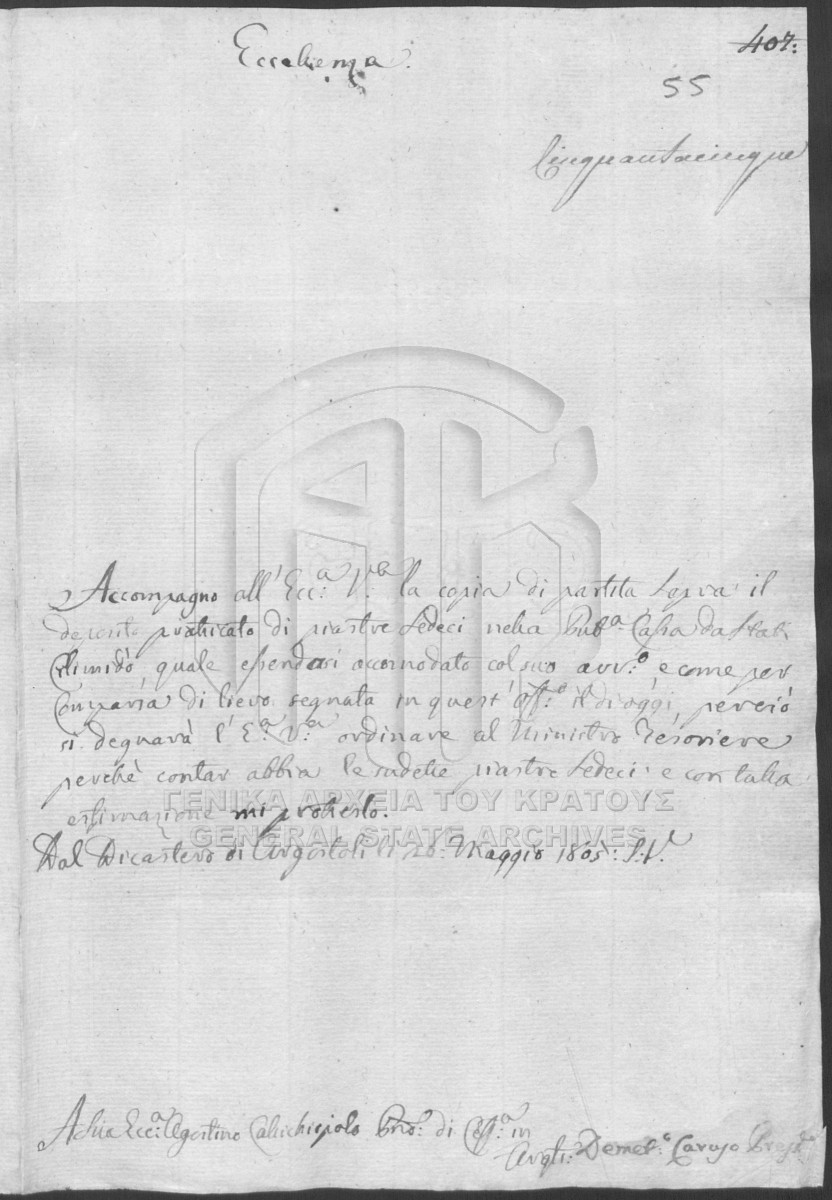 407:
Eccellenza.
55
Cinquantacinque
Accompagno all'Ecc.a V.ra la copia di partita sopra il
deposito pratticato di piastre sedeci nella Pub.a Cassa da Stati
quale essendosi accomodato col suo avv.o, e come per
Comparsa di lievo segnata in quest'Off.o il dì oggi, perciò
si degnarà l'E.a V.a ordinare al Ministro Tesoriere
perchè contar abbia le sudette piastre sedeci e con tutta
estimazione mi protesto.
ΓΕΝΙΚΑ ΑΡΧΕΙΑ ΤΟΥ ΚΡΑΤΟΥΣ
GENERAL STATE ARCHIVES
Dal Dicastero di Argostoli li 20. Maggio 1805: S:V.
A Sua Ecc.a Agostino di Ceff.a in
Argli: Demet.o Caruso